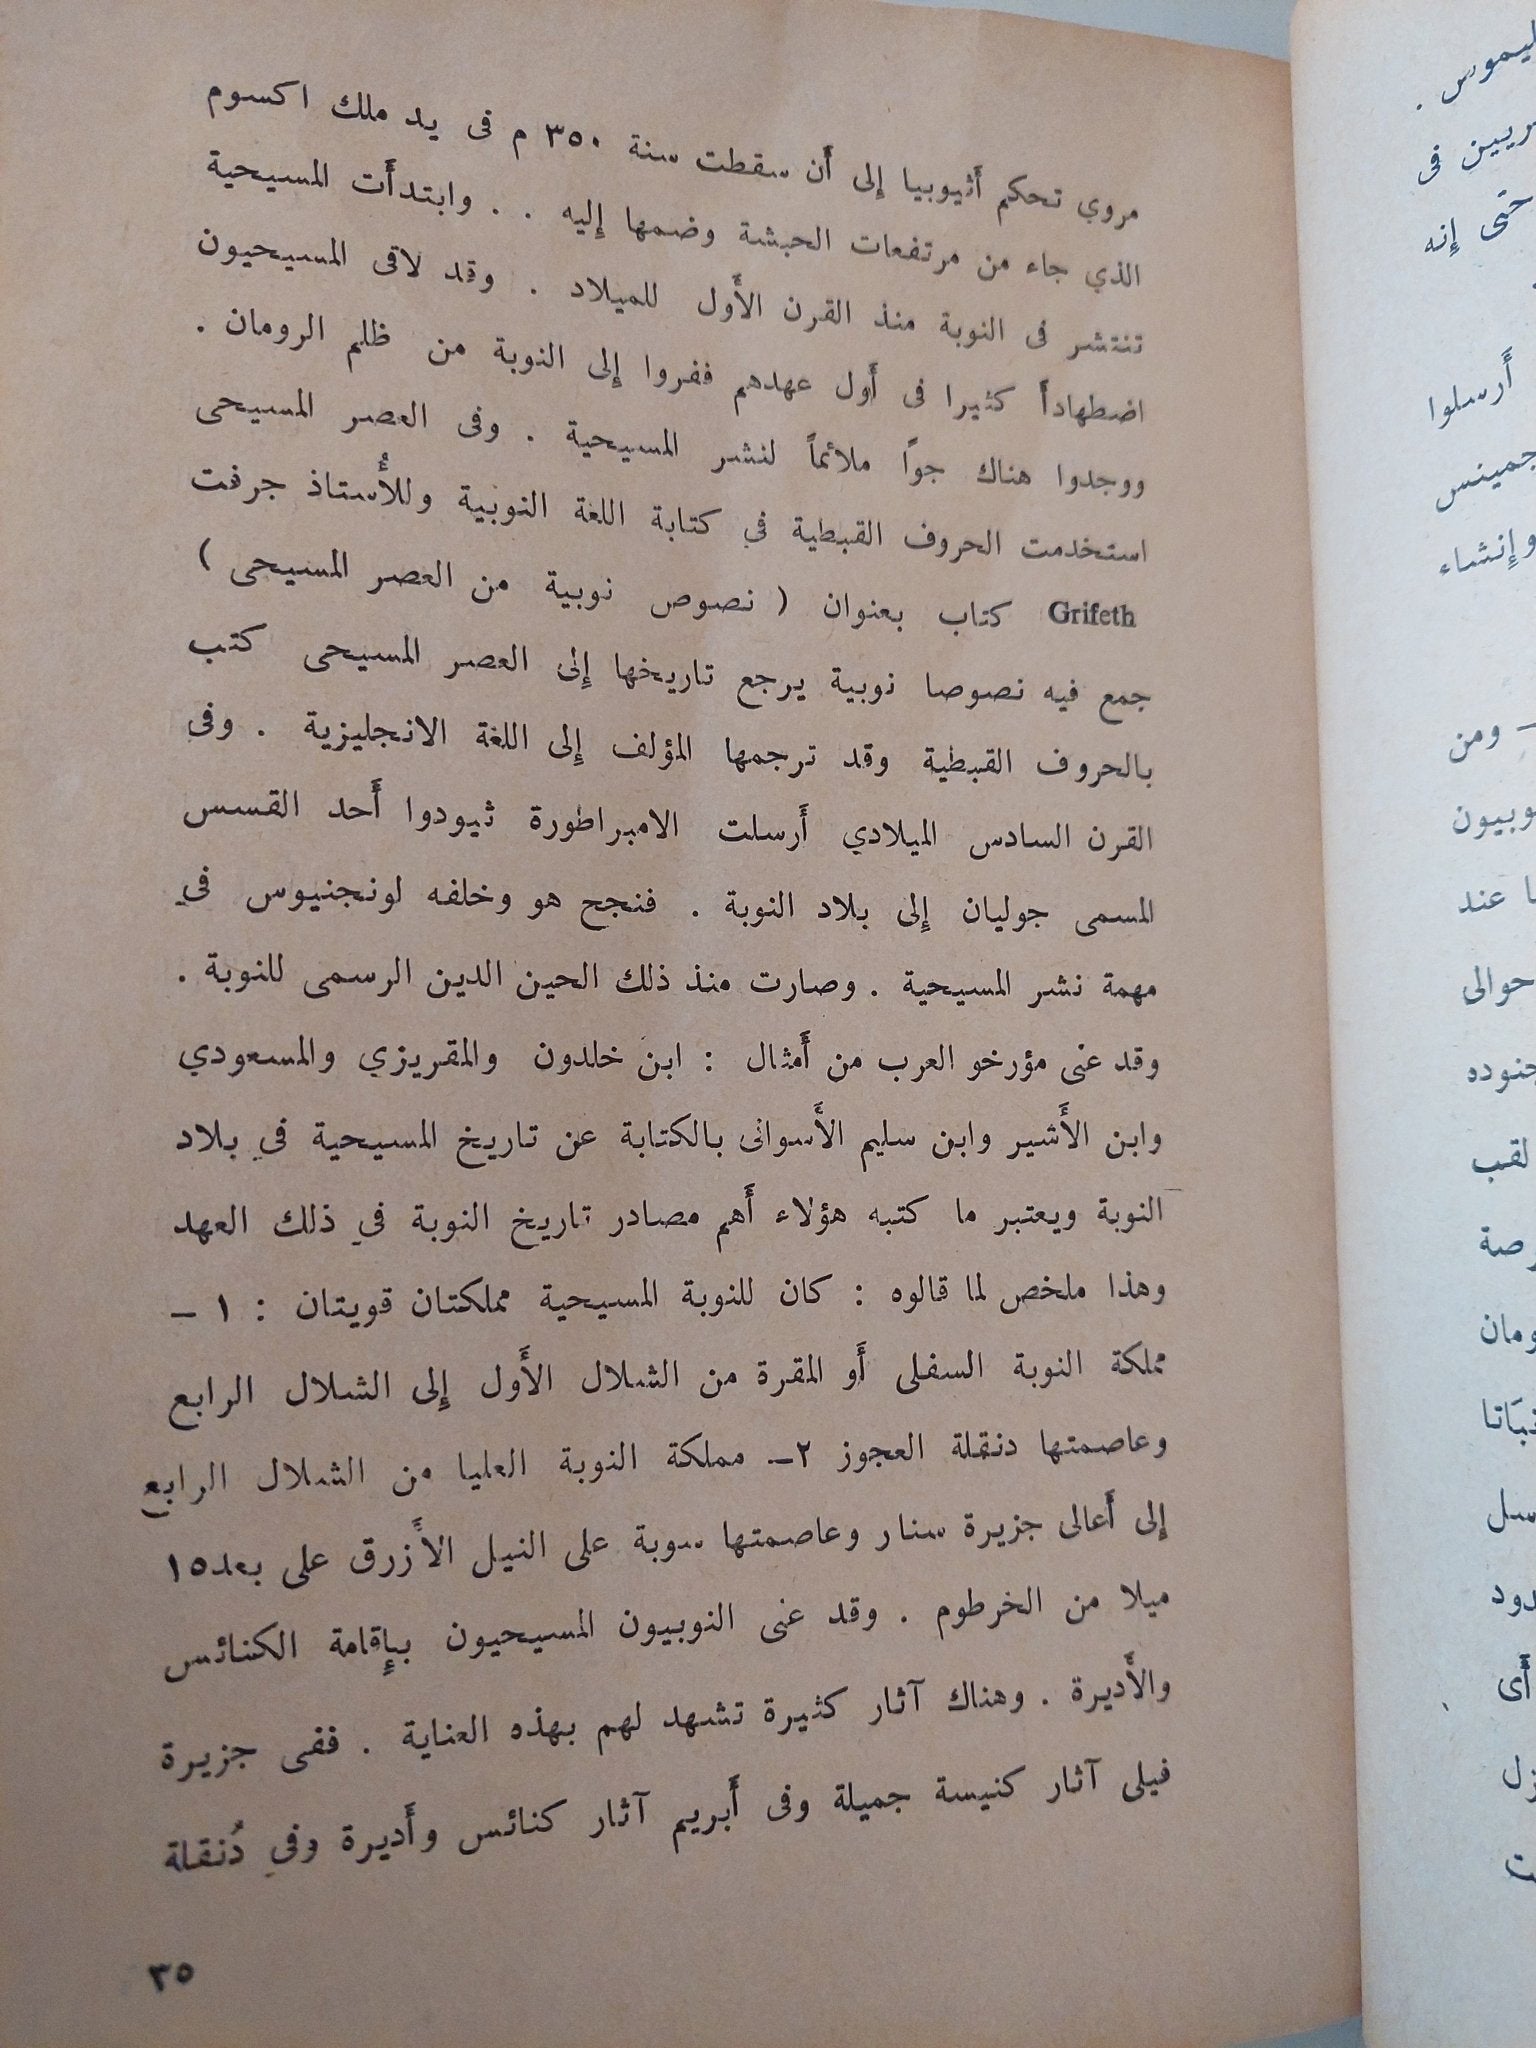 مروي تحكم أثيوبيا إلى أن سقطت سنة ٣٥٠ م فى يد ملك اكسوم
الذي جاء من مرتفعات الحبشة وضمها إليه . . وابتدأت المسيحية
تنتشر فى النوبة منذ القرن الأول للميلاد . وقد لاقى المسيحيون
اضطهاداً كثيرا فى أول عهدهم ففروا إلى النوبة من ظلم الرومان .
ووجدوا هناك جواً ملائماً لنشر المسيحية . وفى العصر المسيحى
استخدمت الحروف القبطية في كتابة اللغة النوبية وللأستاذ جرفت
Grifeth كتاب بعنوان ( نصوص نوبية من العصر المسيحى )
جمع فيه نصوصا نوبية يرجع تاريخها إلى العصر المسيحى كتب
بالحروف القبطية وقد ترجمها المؤلف إلى اللغة الانجليزية . وفى
القرن السادس الميلادي أرسلت الامبراطورة ثيودوا أحد القسس
المسمى جوليان إلى بلاد النوبة . فنجح هو وخلفه لونجنيوس في
مهمة نشر المسيحية . وصارت منذ ذلك الحين الدين الرسمى للنوبة .
وقد عنى مؤرخو العرب من أمثال : ابن خلدون والمقريزي والمسعودي
وابن الأشير وابن سليم الأسوانى بالكتابة عن تاريخ المسيحية في بلاد
النوبة ويعتبر ما كتبه هؤلاء أهم مصادر تاريخ النوبة في ذلك العهد
وهذا ملخص لما قالوه : كان للنوبة المسيحية مملكتان قويتان : ١ –
مملكة النوبة السفلى أو المقرة من الشلال الأول إلى الشلال الرابع
وعاصمتها دنقلة العجوز ٢– مملكة النوبة العليا من الشلال الرابع
إلى أعالى جزيرة سنار وعاصمتها سوبة على النيل الأزرق على بعد١٥
ميلا من الخرطوم . وقد عنى النوبيون المسيحيون بإقامة الكنائس
والأديرة . وهناك آثار كثيرة تشهد لهم بهذه العناية . ففى جزيرة
فيلى آثار كنيسة جميلة وفى أبريم آثار كنائس وأديرة وفي دُنقلة
٣٥
حتى إنه
أرسلوا
وإنشاء
– ومن
عند
حوالى
لقب
أى